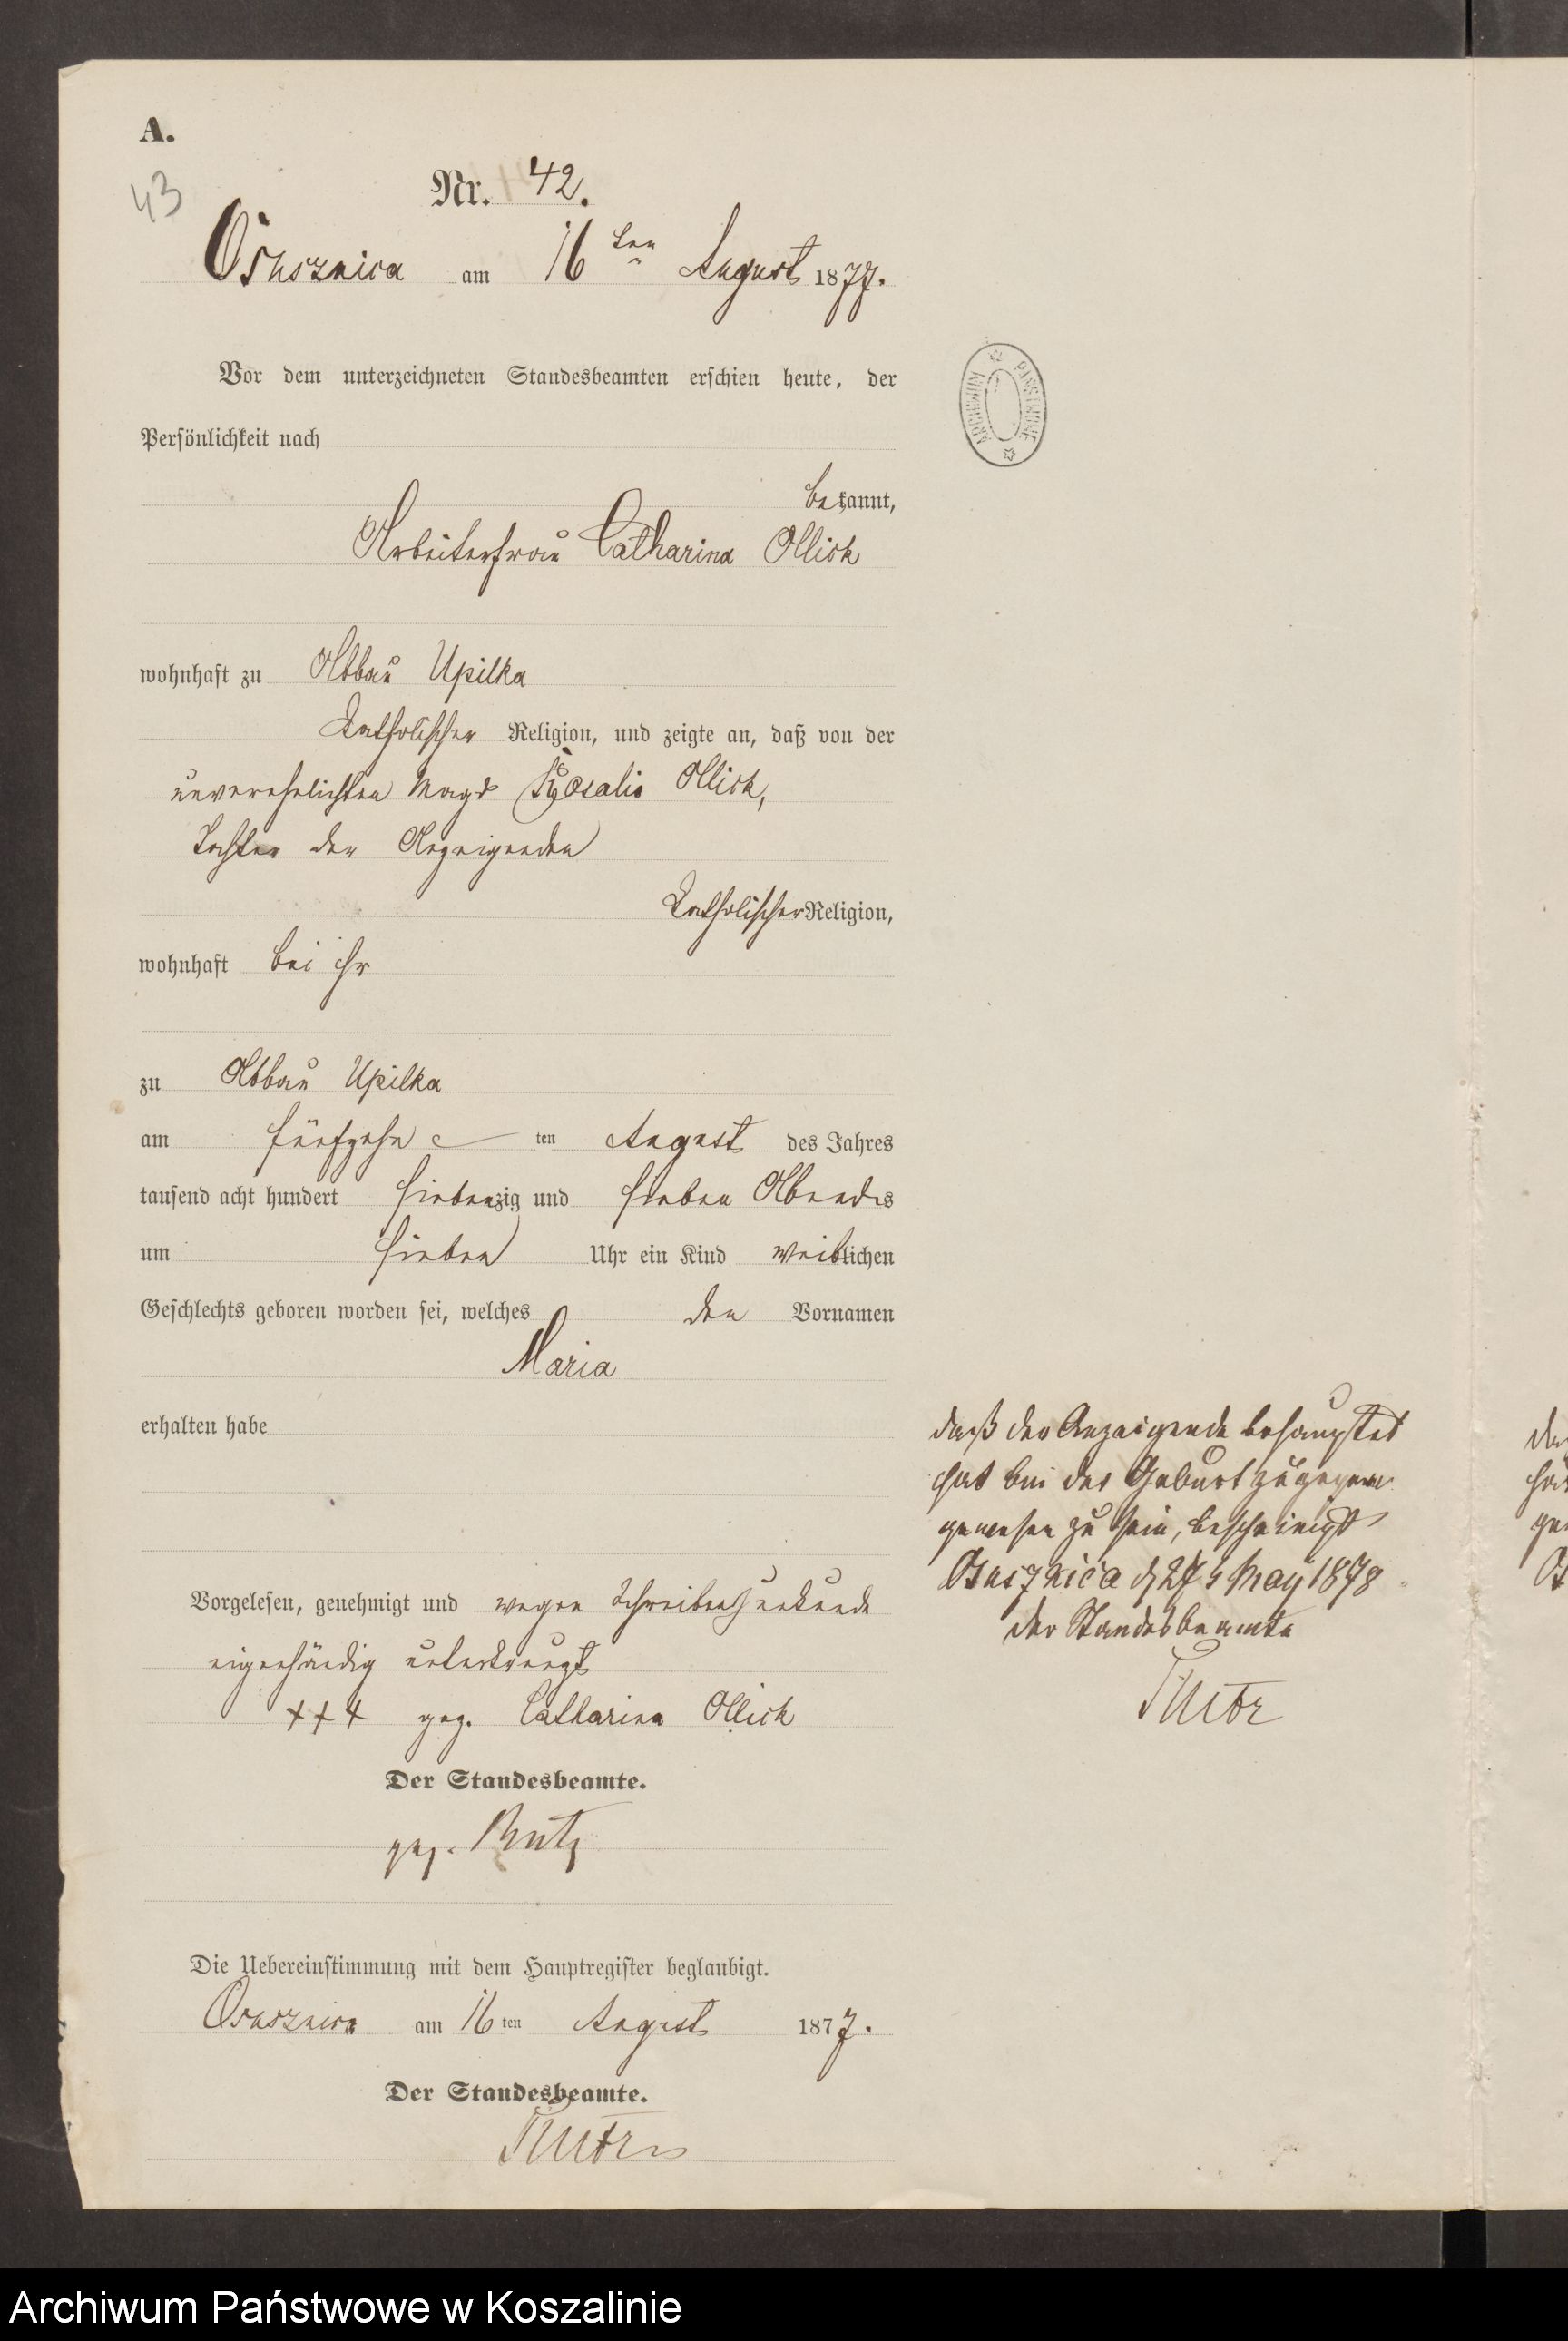 A.
43
Nr. 42.
Osusznica am 16ten August 1877.
Vor dem unterzeichneten Standesbeamten erschien heute, der
Persönlichkeit nach
bekannt,
Arbeiterfrau Catharina Ollick
wohnhaft zu Abbau Upilka
katholischer Religion, und zeigte an, daß von der
unverehelichten Magd Rosalie Ollick,
Tochter der Anzeigenden
katholischer Religion,
wohnhaft bei ihr
zu Abbau Upilka
am fünfzehn ten August des Jahres
tausend acht hundert siebenzig und sieben Abends
um sieben Uhr ein Kind weiblichen
Geschlechts geboren worden sei, welches den Vornamen
Maria
erhalten habe
Vorgelesen, genehmigt und wegen Schreibensunkunde
eigenhändig unterkreuzt
+++ gez. Catharina Ollick
Der Standesbeamte.
gez.
Die Uebereinstimmung mit dem Hauptregister beglaubigt.
Osusznica am 16 ten August 1877.
Der Standesbeamte.
daß der Anzeigende behauptet
hat bei der Geburt zugegen
gewesen zu sein, bescheinigt
Osusznica May 1878
der Standesbeamte
ARCHIWUM PAŃSTWOWE
Archiwum Państwowe w Koszalinie